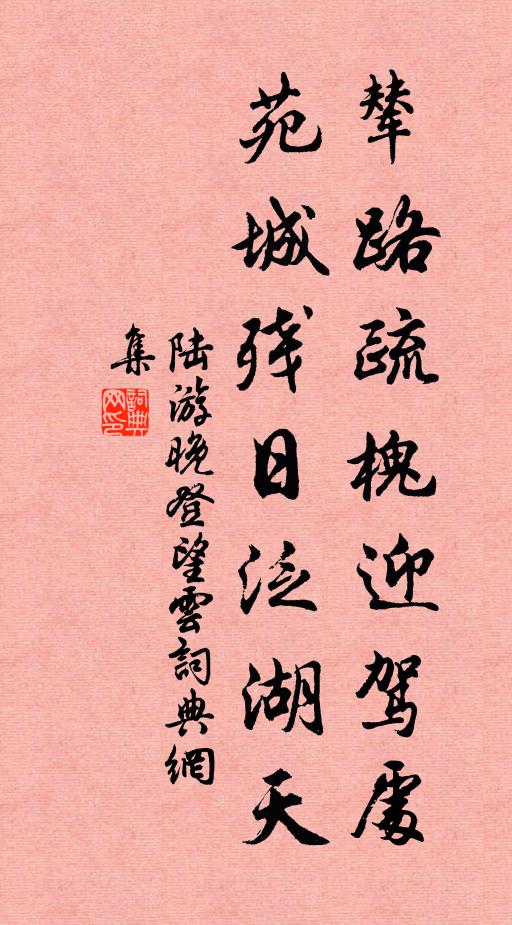 輦路疏槐迎駕處
苑城残日泛湖天
陆游晚登望雲詞典網
集
詞典
网印